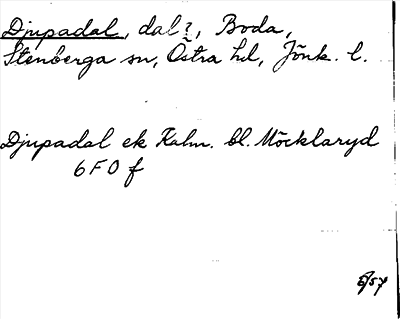 Djupadal, dal?, Boda,
Stenberga sn, Östra hd, Jönk. l.
Djupadal ek Kalm. bl. Möcklaryd
6F0f